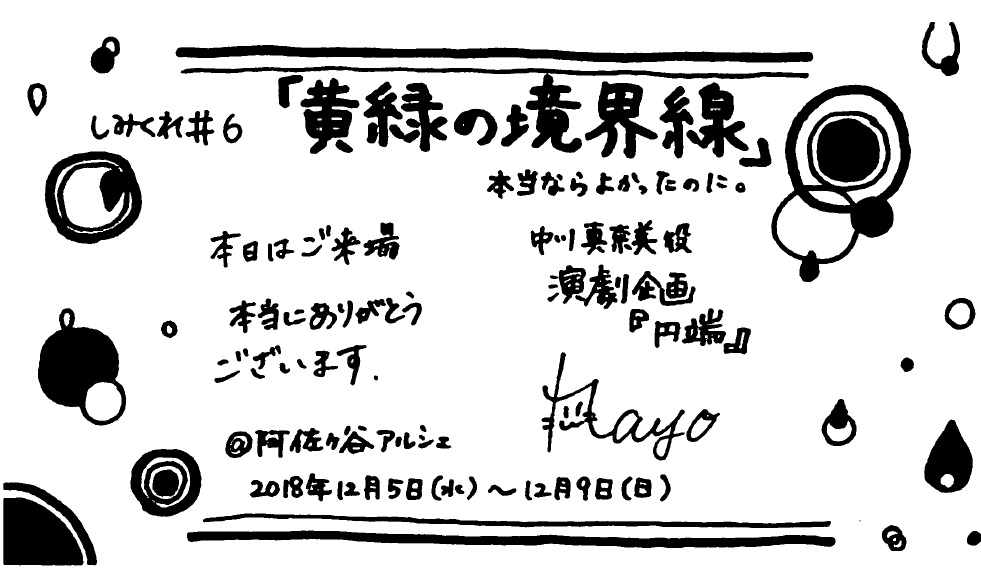 しみくれ#6
「黄緑の境界線」
本当ならよかったのに。
本日はご来場
本当にありがとう
ございます.
中川真奈美役
演劇企画
『円端』
Mayo
@阿佐ヶ谷アルシェ
2018年12月5日(水)〜12月9日(日)